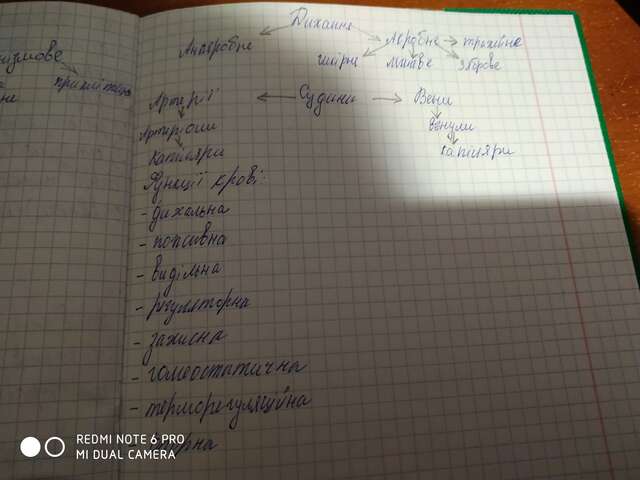 Дихання
Анаеробне Аеробне трахейне
шкірне зяброве
Артерії Судини Вени
Артеріоли венули
Капіляри капіляри
Функції крові:
- дихальна
- поживна
- видільна
- регуляторна
- захисна
- гомеостатична
- терморегуляційна
REDMI NOTE 6 PRO
MI DUAL CAMERA